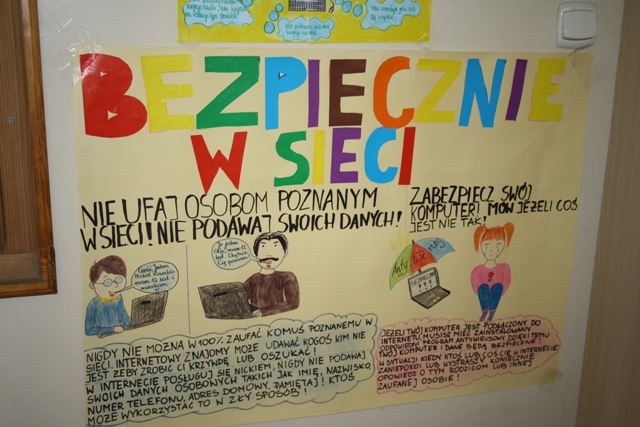 BEZPIECZNIE
W SIECI
NIE UFAJ OSOBOM POZNANYM
W SIECI! NIE PODAWAJ SWOICH DANYCH!
ZABEZPIECZ SWÓJ
KOMPUTER! MÓW JEŻELI COŚ
JEST NIE TAK!
Cześć, jestem
Michał Kowalski
mam 12 lat i
Ja jestem
Ola, mam 12
lat. Chętnie
Cię poznam
Anty
NIGDY NIE MOŻNA W 100% ZAUFAĆ KOMUŚ POZNANEMU W
SIECI. INTERNETOWY ZNAJOMY MOŻE UDAWAĆ KOGOŚ KIM NIE
JEST ŻEBY ZROBIĆ CI KRZYWDĘ LUB OSZUKAĆ!
W INTERNECIE POSŁUGUJ SIĘ NICKIEM, NIGDY NIE PODAWAJ
SWOICH DANYCH OSOBOWYCH TAKICH JAK IMIĘ, NAZWISKO,
NUMER TELEFONU, ADRES DOMOWY. PAMIĘTAJ! KTOŚ
MOŻE WYKORZYSTAĆ TO W ZŁY SPOSÓB!
JEŻELI TWÓJ KOMPUTER JEST PODŁĄCZONY DO
INTERNETU MUSISZ MIEĆ ZAINSTALOWANY
ODPOWIEDNI PROGRAM ANTYWIRUSOWY. DZIĘKI TEMU
TWÓJ KOMPUTER I DANE BĘDĄ BEZPIECZNE!
W SYTUACJI KIEDY KTOŚ LUB COŚ CIĘ W INTERNECIE
ZANIEPOKOI LUB WYSTRASZY, KONIECZNIE
OPOWIEDZ O TYM RODZICOM LUB INNEJ
ZAUFANEJ OSOBIE!